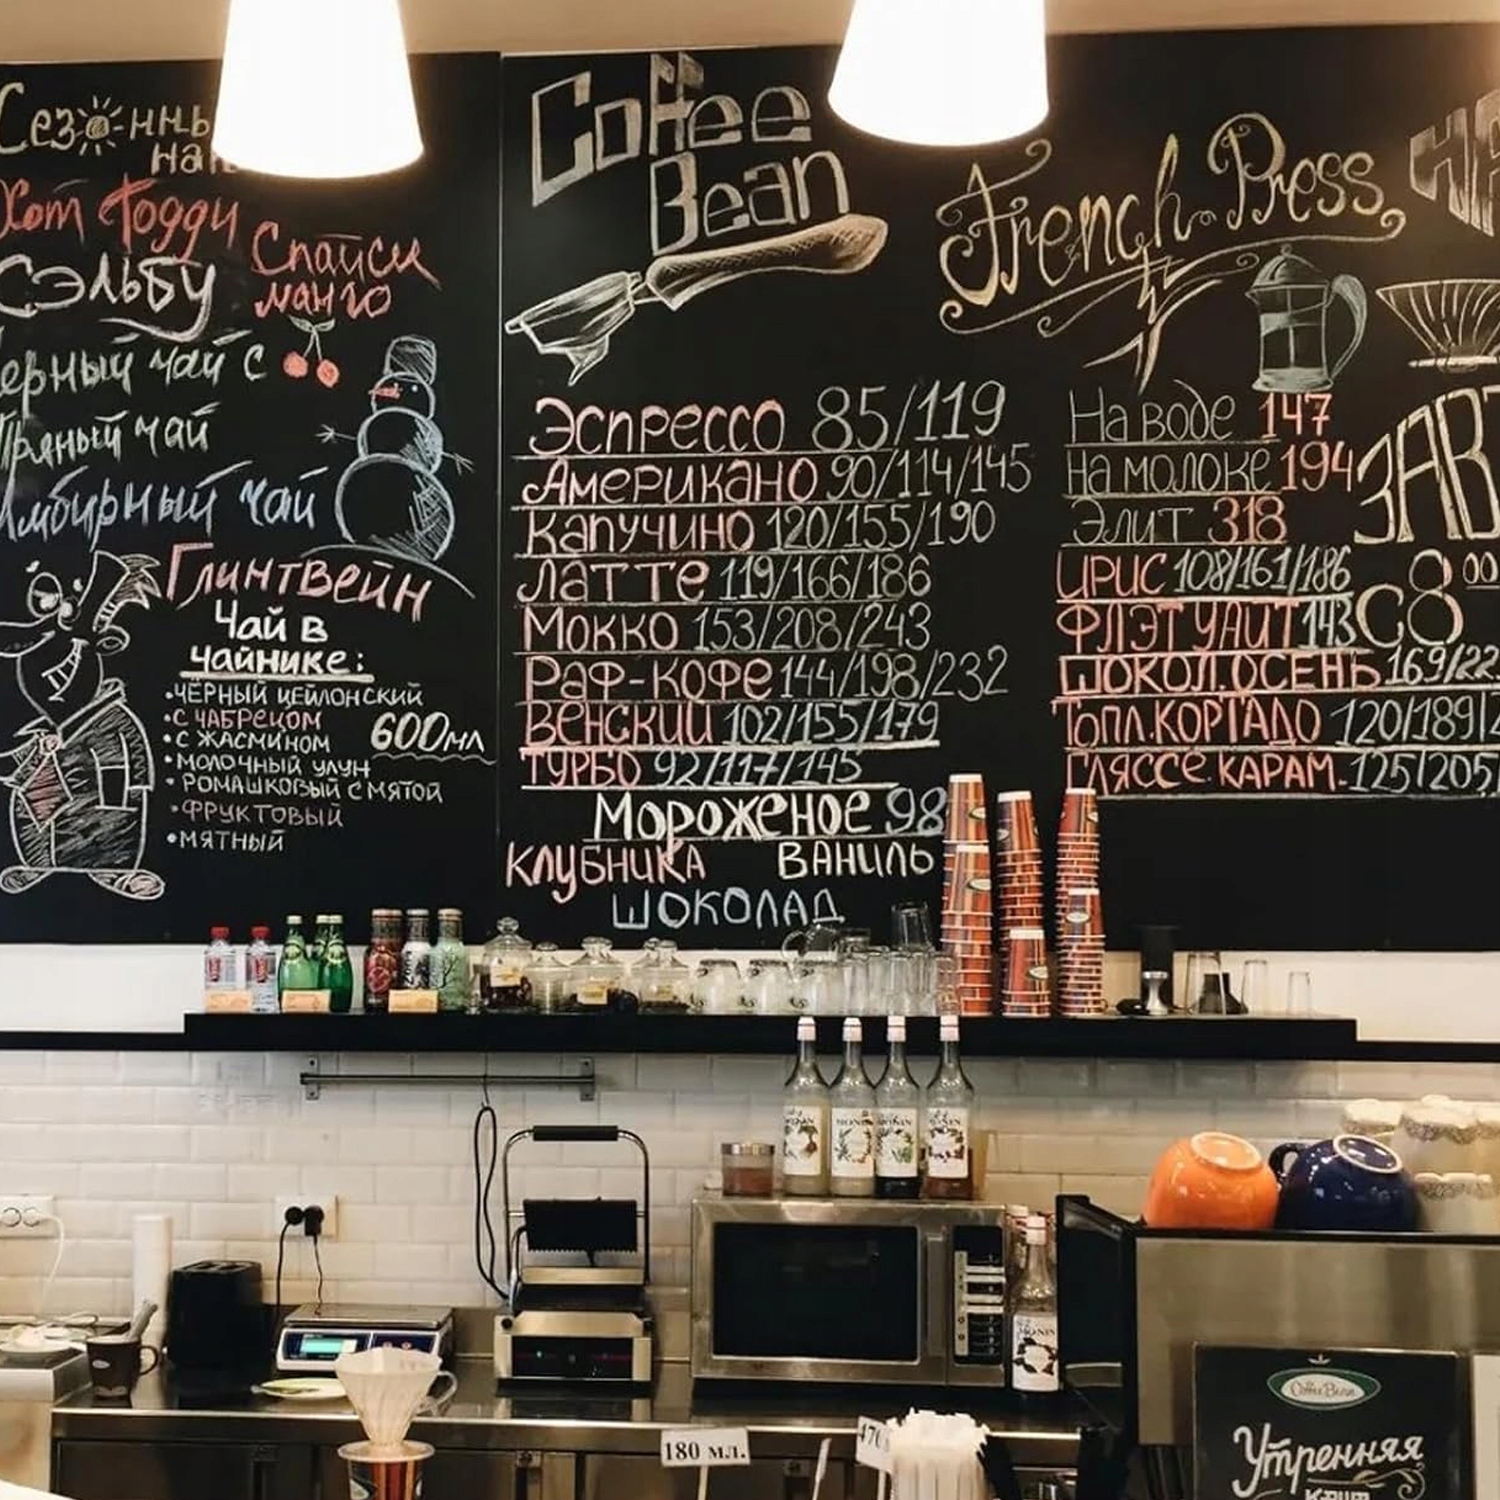 Хот Тодди
Сэльбу
Спайси
манго
чай с
Пряный чай
Имбирный чай
Глинтвейн
Чай в
чайнике:
•ЧЁРНЫЙ ЦЕЙЛОНСКИЙ
•С ЧАБРЕЦОМ
•С ЖАСМИНОМ
600мл
•МОЛОЧНЫЙ УЛУН
•РОМАШКОВЫЙ С МЯТОЙ
•ФРУКТОВЫЙ
•МЯТНЫЙ
Coffee
Bean
Эспрессо 85/119
Американо 90/114/145
Капучино 120/155/190
Латте 119/166/186
Мокко 153/208/243
Раф-кофе 144/198/232
Венский 102/155/179
Турбо 92/117/145
Мороженое 98
Клубника Ваниль
Шоколад
French Press
На воде 147
На молоке 194
Элит 318
Ирис 108/161/186
Флэт уайт 143
Шокол.осень 169/22
Топл.кортадо 120/189/2
Гляссе карам. 125/205/
ЗАВТ
с 8 00
180 мл.
470
Coffee Bean
Утренняя
MONIN
MONIN
MONIN
MONIN
MONIN